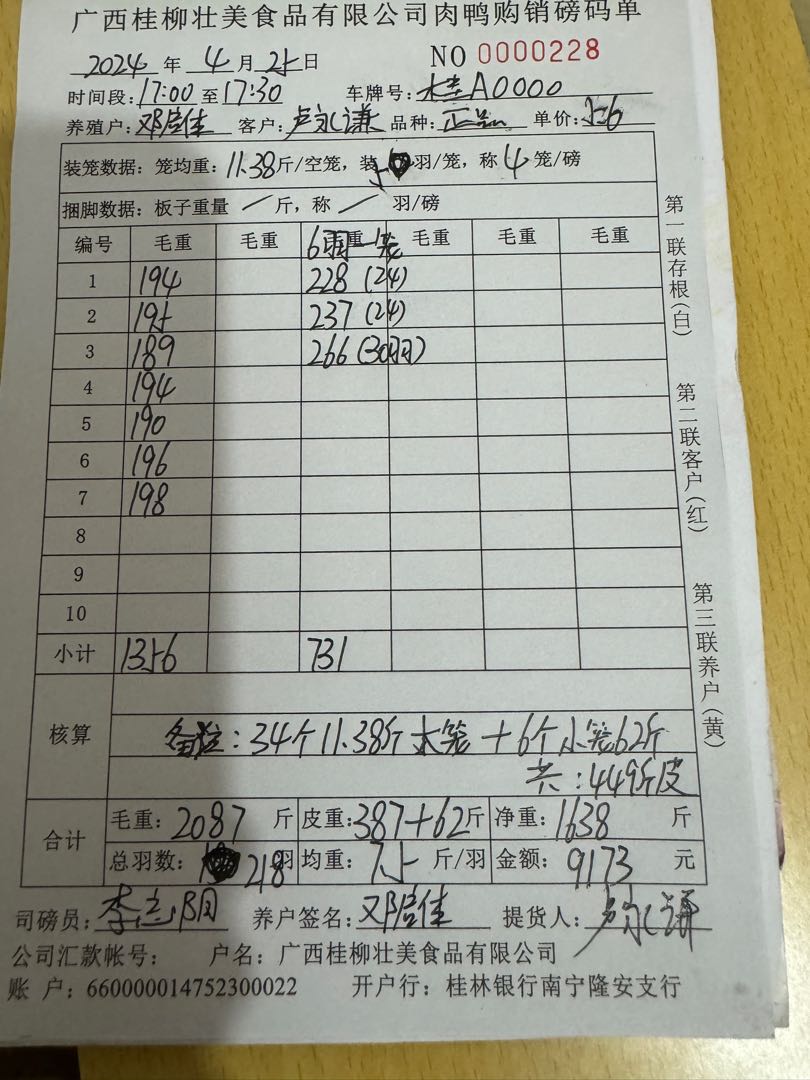 广西桂柳壮美食品有限公司肉鸭购销磅码单
2024 年 4 月 25 日 NO 0000228
时间段: 17:00 至 17:30 车牌号: 桂A0000
养殖户: 邓启佳 客户: 卢永谦 品种: 正品 单价: 5.6
装笼数据: 笼均重: 11.38 斤/空笼, 装 5 羽/笼, 称 4 笼/磅
捆脚数据: 板子重量 / 斤, 称 / 羽/磅
编号 毛重 毛重 6羽一笼 毛重 毛重 毛重 毛重
1 194 228 (24)
2 195 237 (24)
3 189 266 (30羽)
4 194
5 190
6 196
7 198
8
9
10
小计 1356 731
核算
备注: 34个11.38斤大笼 + 6个小笼62斤
共: 449斤皮
合计 毛重: 2087 斤 皮重: 387+62 斤 净重: 1638 斤
总羽数: 218 羽 均重: 7.5 斤/羽 金额: 9173 元
司磅员: 李志阳 养户签名: 邓启佳 提货人: 卢永谦
公司汇款帐号: 户名: 广西桂柳壮美食品有限公司
账 户: 660000014752300022 开户行: 桂林银行南宁隆安支行
第一联存根(白)
第二联客户(红)
第三联养户(黄)